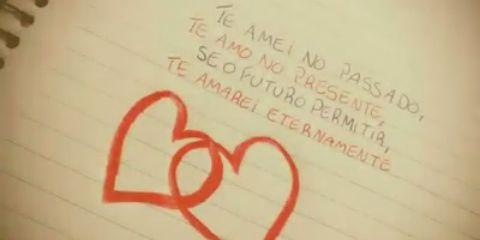 TE AMEI NO PASSADO,
TE AMO NO PRESENTE,
SE O FUTURO PERMITIR,
TE AMAREI ETERNAMENTE